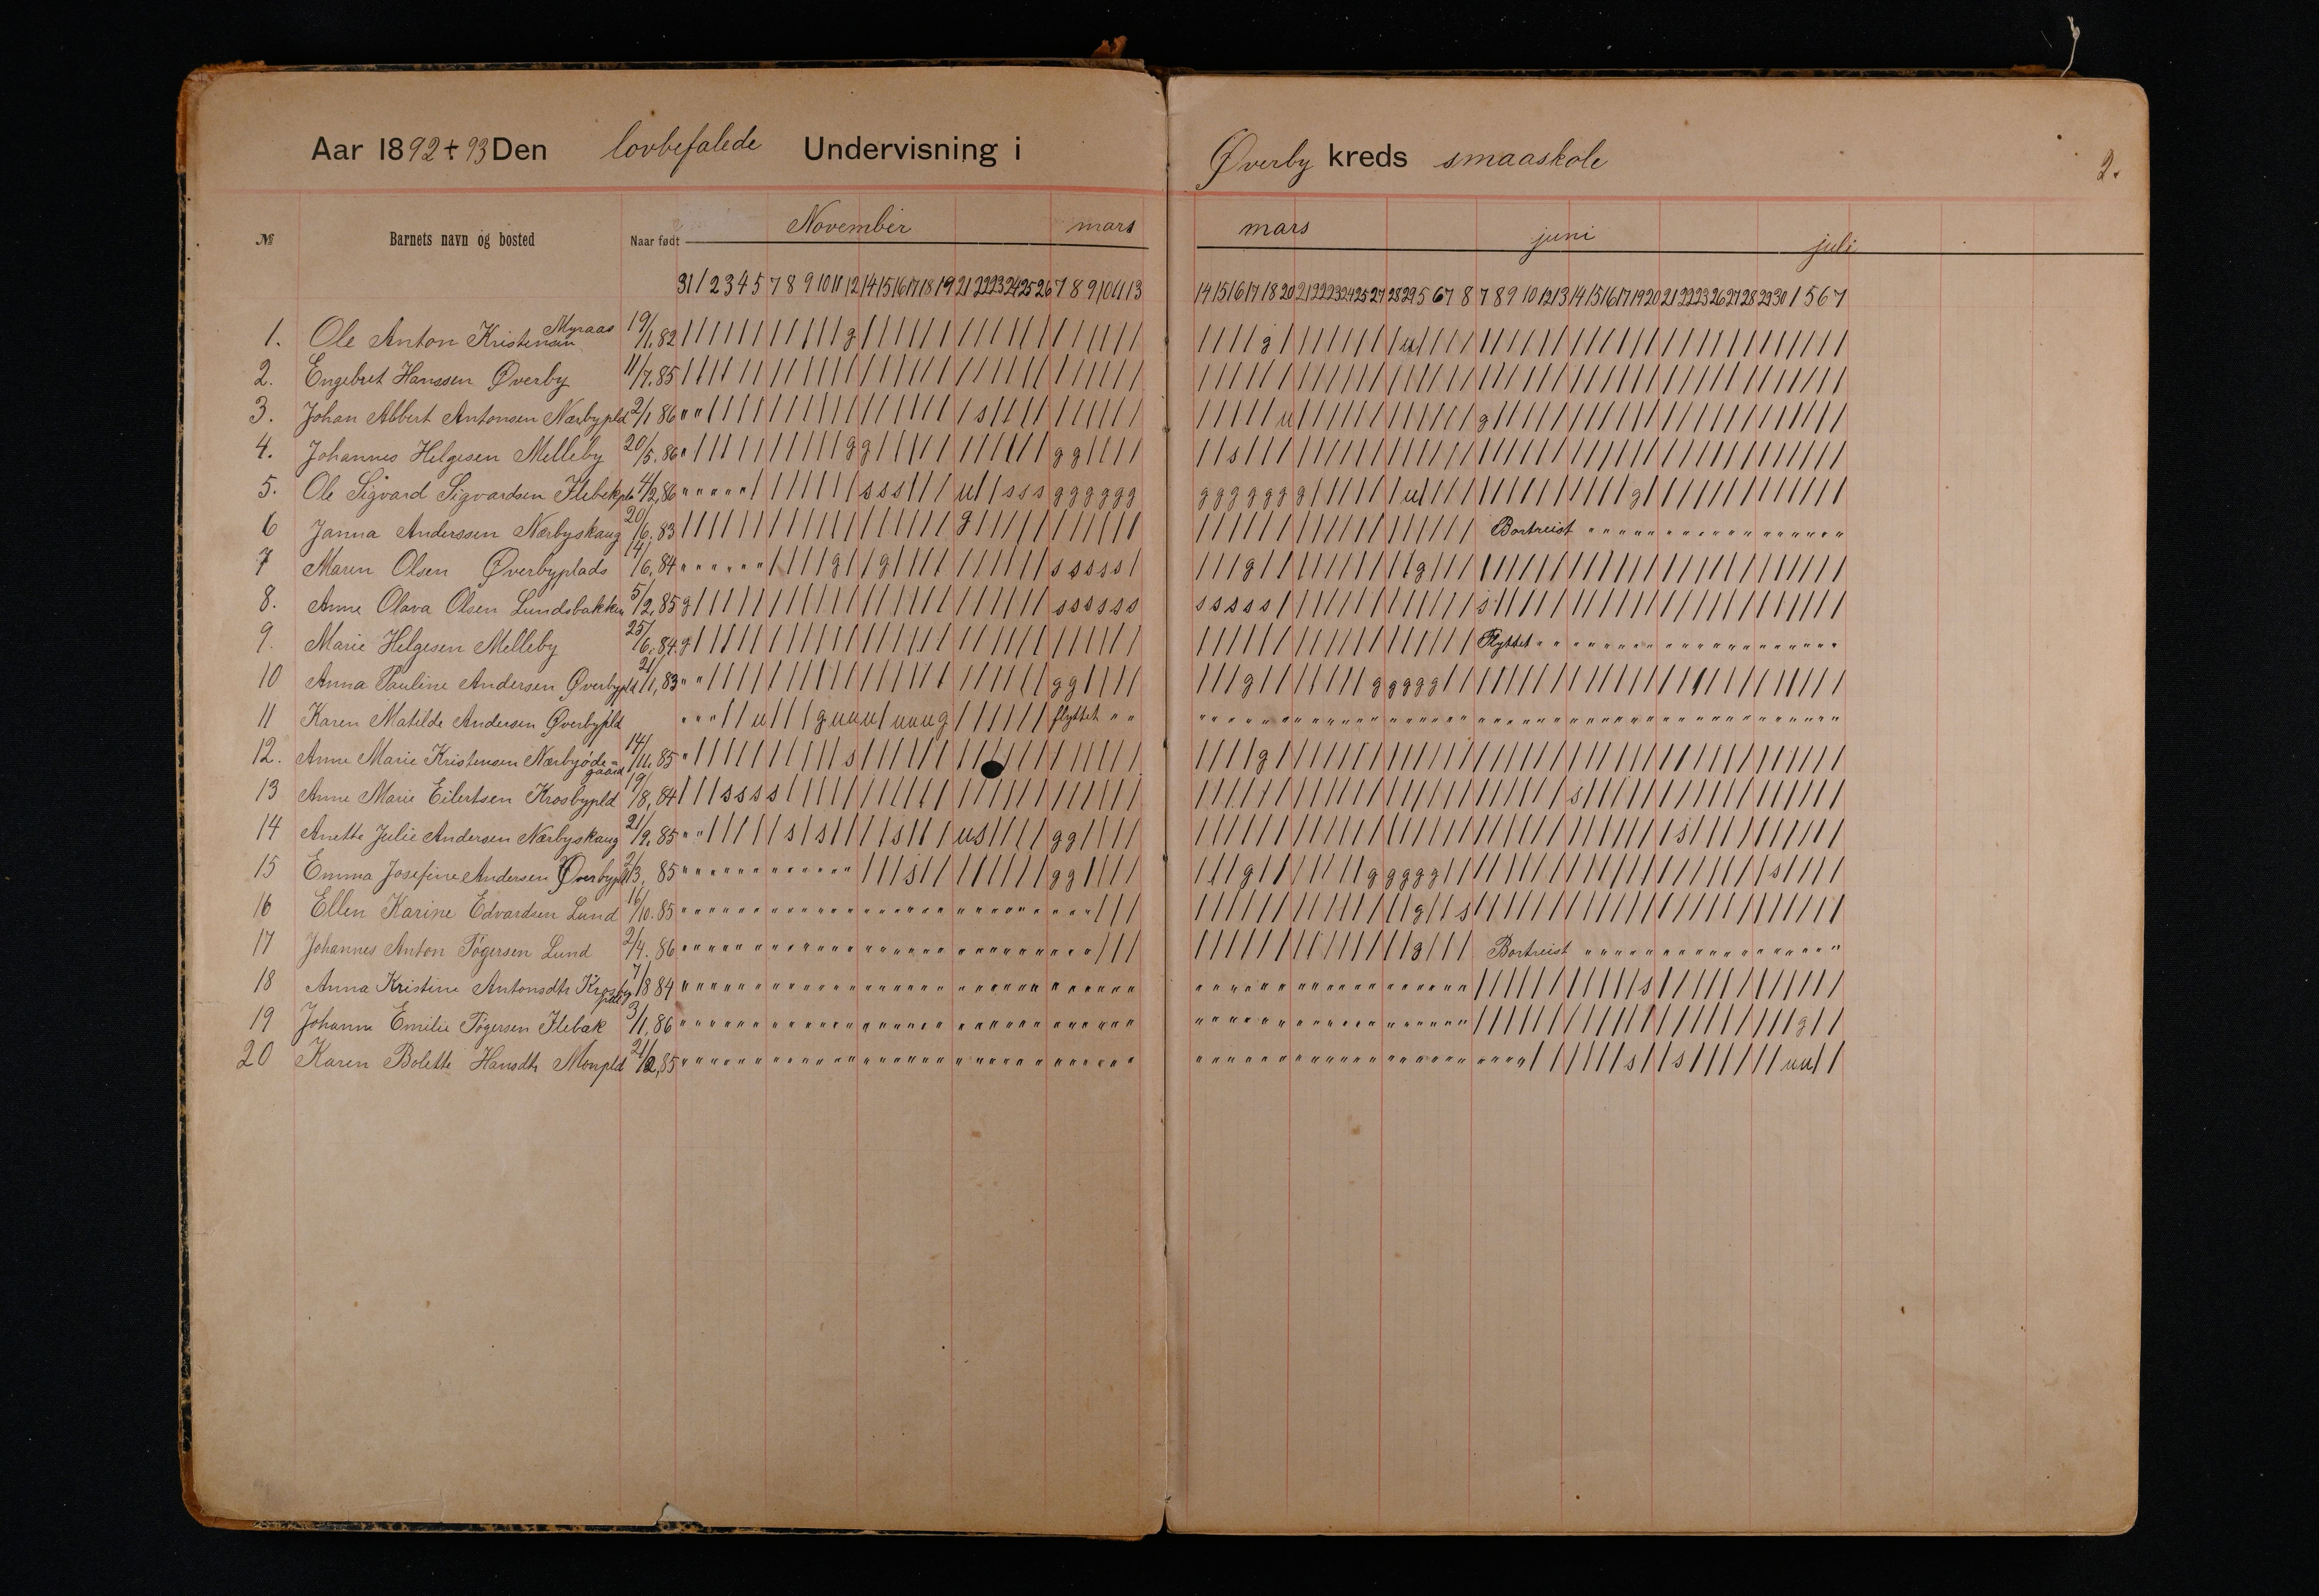 Aar 1892+93 Den lovbefalede Undervisning i Øverby kreds smaaskole 2.
№ Barnets navn og bosted Naar født November mars mars juni juli
31 1 2 3 4 5 7 8 9 10 11 12 14 15 16 17 18 19 21 22 23 24 25 26 7 8 9 10 11 13 14 15 16 17 18 20 21 22 23 24 25 27 28 29 5 6 7 8 7 8 9 10 12 13 14 15 16 17 19 20 21 22 23 26 27 28 29 30 1 5 6 7
1. Ole Anton Kristensen Myraas 19/1.82
2. Engebret Hanssen Øverby 11/7.85
3. Johan Albert Antonsen Nærbypld 2/1 86
4. Johannes Helgesen Melleby 20/5.86
5. Ole Sigvard Sigvardsen Flebekpla 4/2,86
6 Janna Anderssen Nærbyskaug 20/6.83 Bortreist
7 Maren Olsen Øverbyplads 14/6.84
8. Anne Olava Olsen Lundsbakken 5/2,85
9. Marie Helgesen Melleby 25/6.84. Flyttet
10 Anna Pauline Andersen Øverbypld 21/1,83
11 Karen Matilde Andersen Øverbypld flyttet
12. Anne Marie Kristensen Nærbyødegaard 14/11.85
13 Anne Marie Eilertsen Krosbypld 19/8,84
14 Anette Julie Andersen Nærbyskaug 21/9.85
15 Emma Josefine Andersen Øverbypld 2/3, 85
16 Ellen Karine Edvardsen Lund 16/10.85
17 Johannes Anton Tögersen Lund 2/4.86 Bortreist
18 Anna Kristine Antonsdtr Krosbypld 7/8 84
19 Johanne Emilie Tögersen Flebak 3/1,86
20 Karen Bolette Hansdtr Monpld 21/2,85